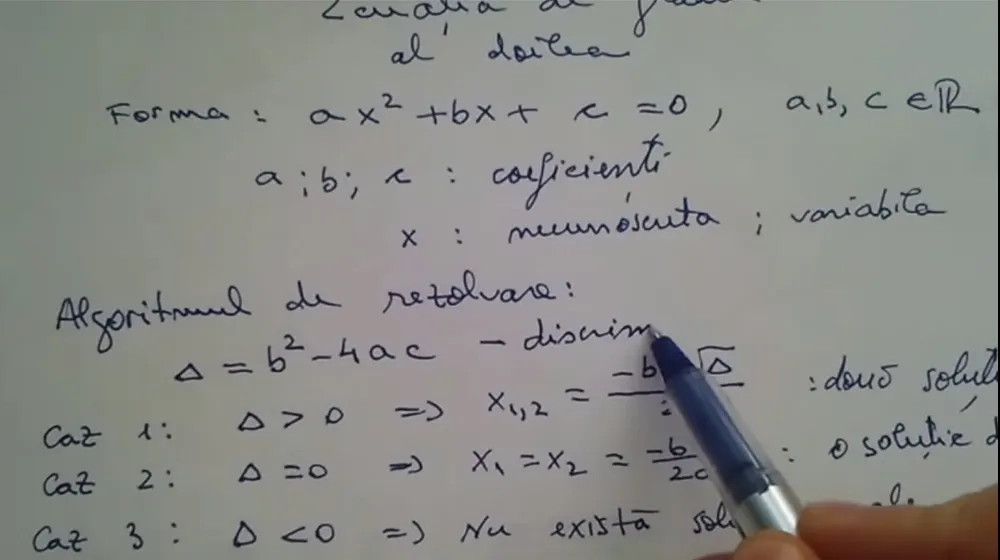 Ecuatia de
al doilea
Forma : ax² + bx + c = 0 , a, b, c ∈ ℝ
a ; b ; c : coeficienti
x : necunóscuta ; variabila
Algoritmul de rezolvare :
Δ = b² - 4ac - discrim
Caz 1 : Δ > 0 => x₁,₂ = -b √Δ : două soluț
Caz 2 : Δ = 0 => x₁ = x₂ = -b/2a : o soluție d
Caz 3 : Δ < 0 => Nu există sol